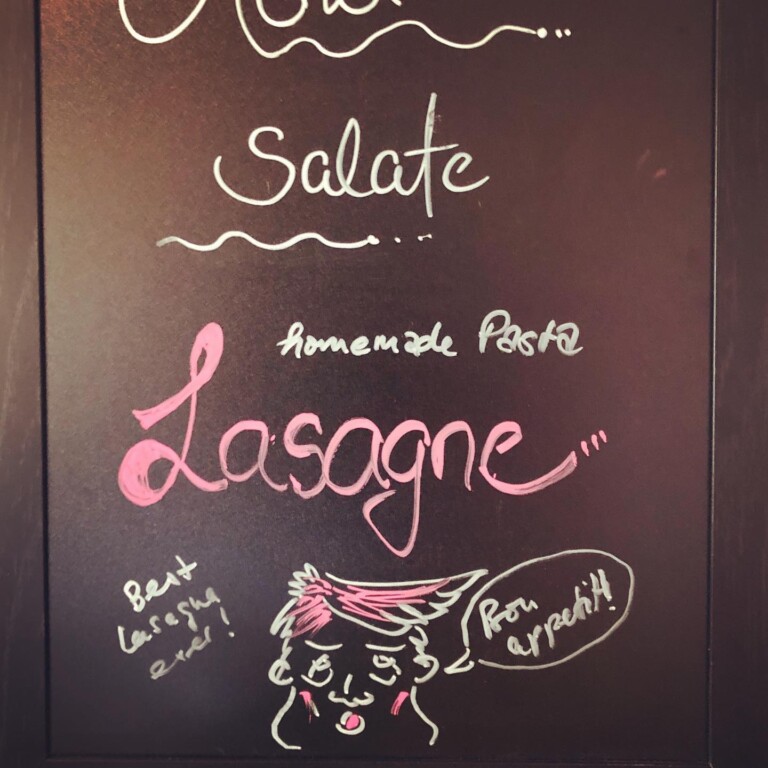 Salate
homemade Pasta
Lasagne...
Best
Lasagna
ever!
Bon
appetit!!